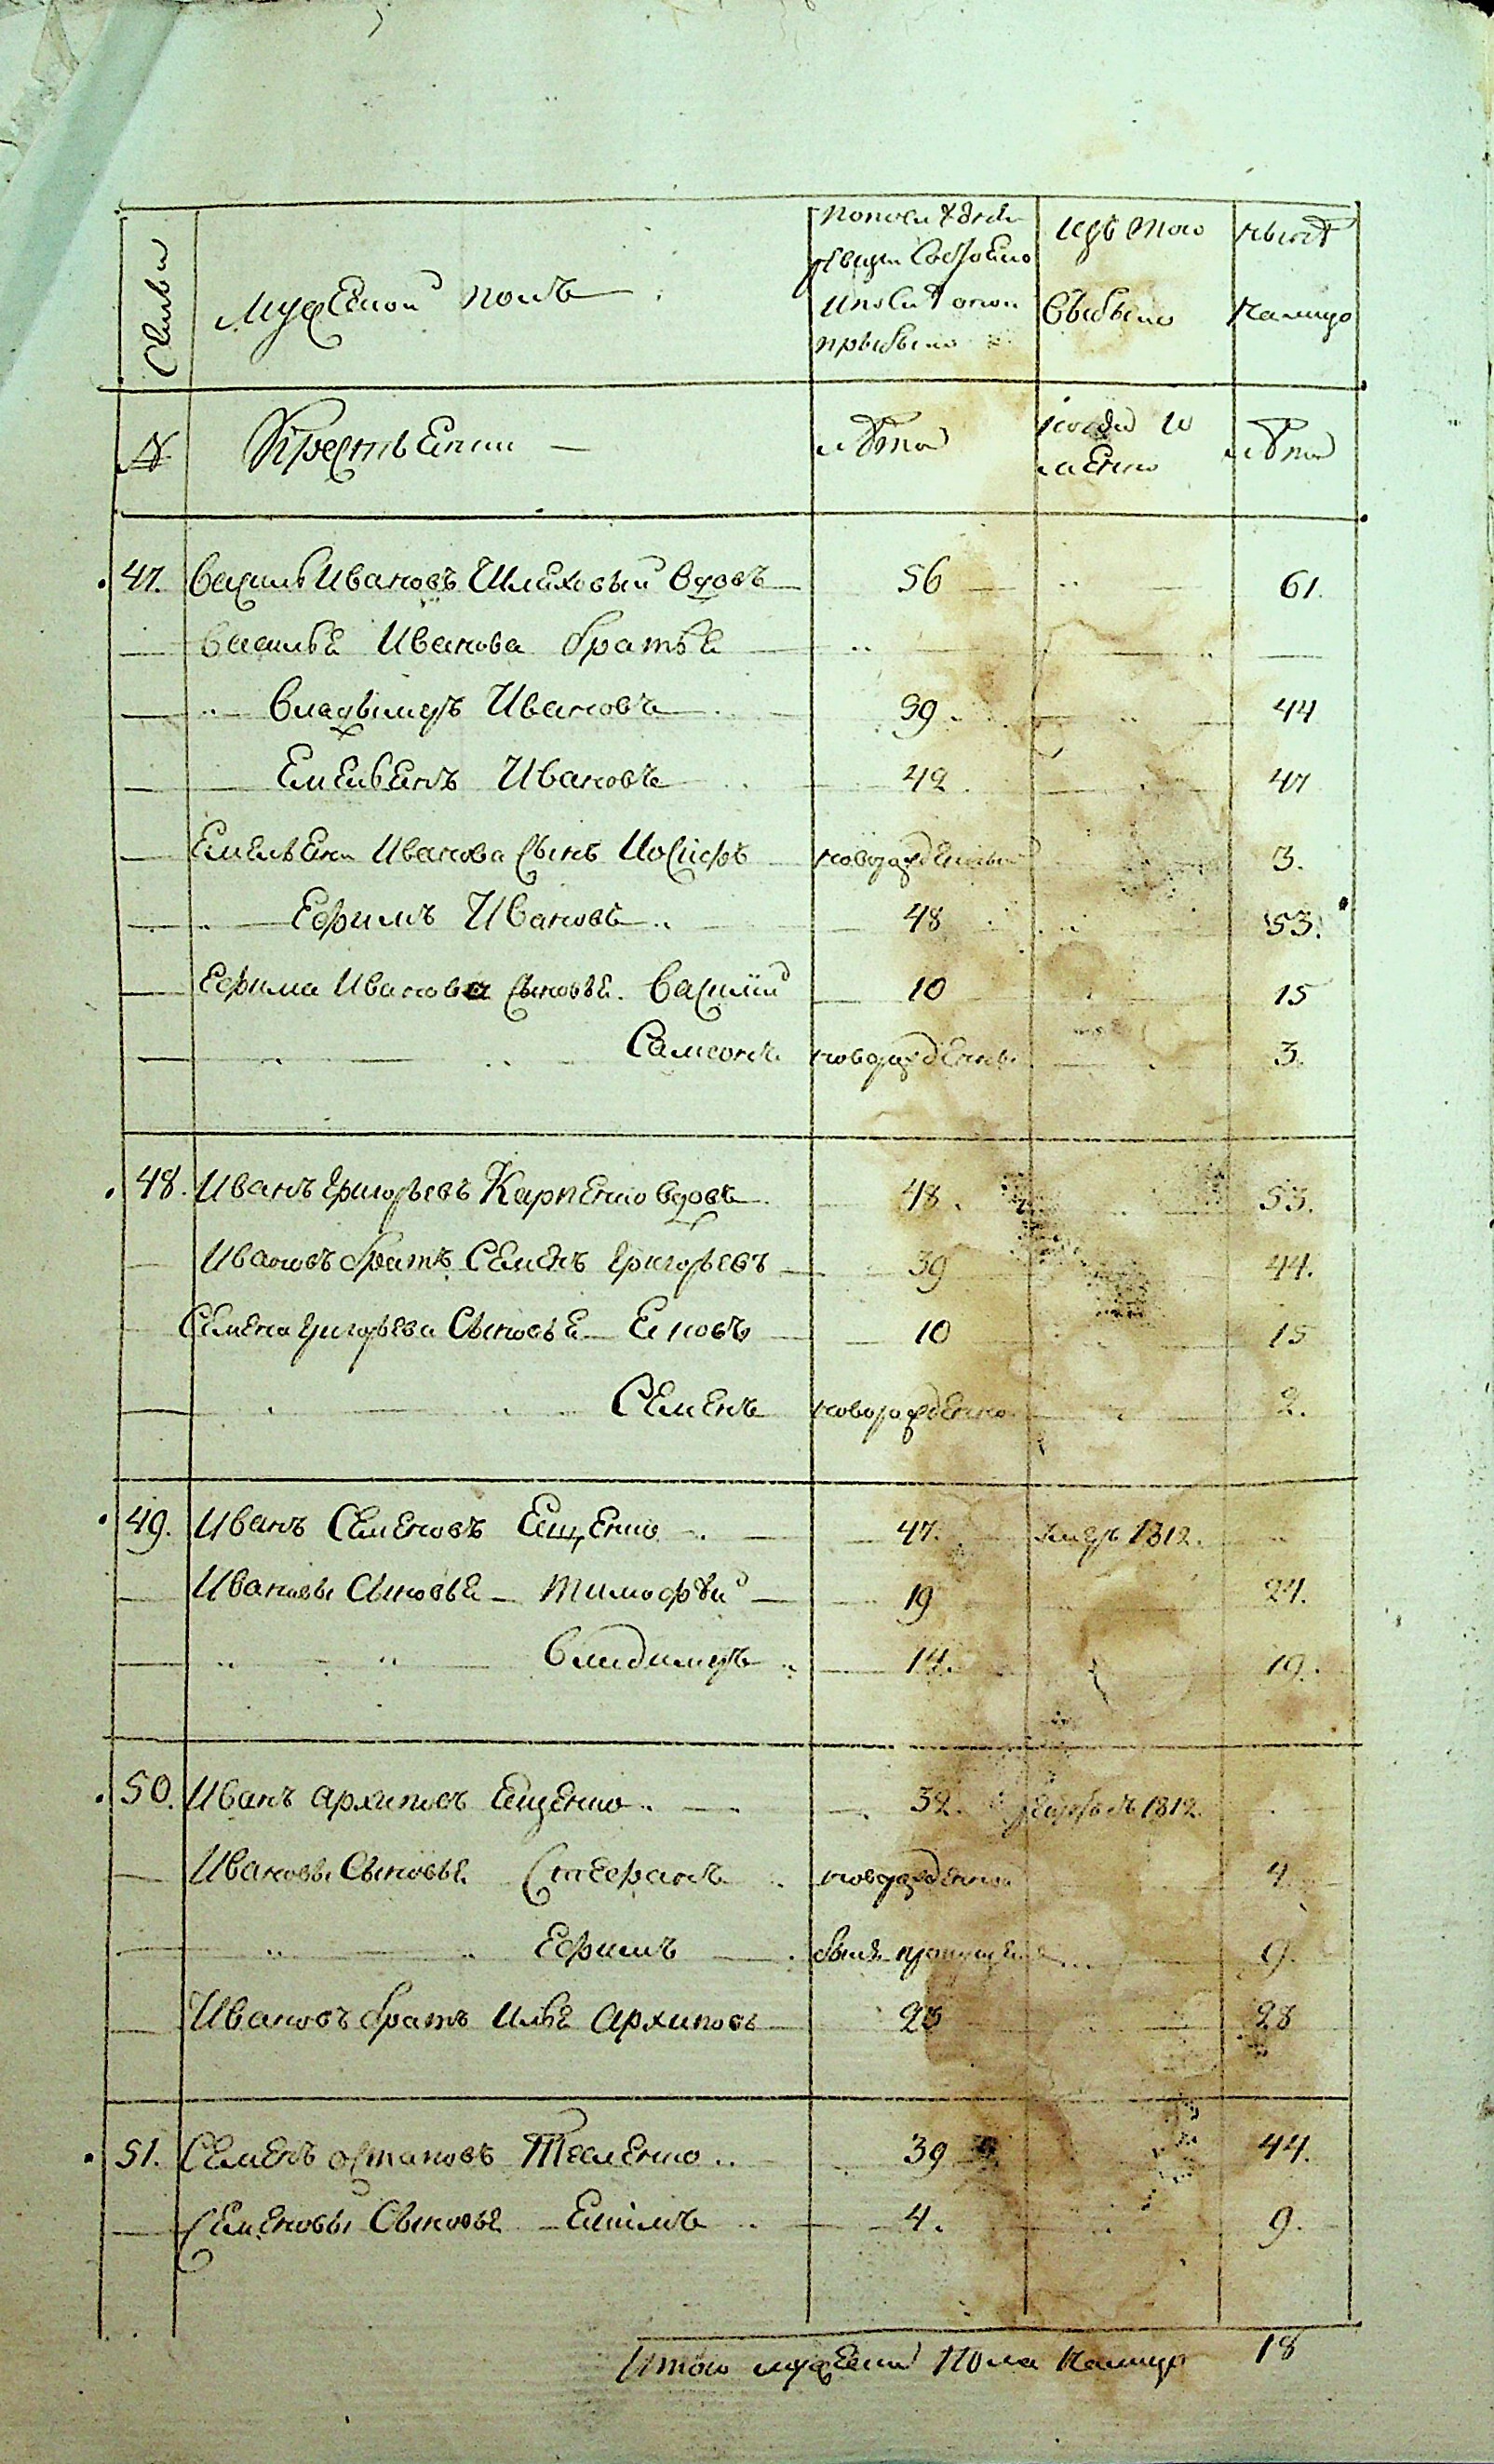 Семьи
Мужеской полъ
по последней
ревизии состояло
и после оной
прибыло
изъ того
выбыло
ныне
на лицо
№
Крестьяне
лета
когда и
лета
47. Василий Ивановъ Шляховый вдовъ 56 61.
Василья Иванова братья
Владымиръ Ивановъ 39. 44
Емельянъ Ивановъ 42 47
Емельяна Иванова сынъ Иосифъ новорожденный 3.
Ефимъ Ивановъ 48 53.
Ефима Иванова сыновья. Василий 10 15
Самсонъ новорожденны 3.
48. Иванъ Григорьевъ Карпенко вдовъ 48. 53.
Ивановъ братъ Семенъ Григорьевъ 39 44.
Семена Григорьева сыновья 10 15
Семенъ новорожденно 2.
49. Иванъ Семеновъ Ещенко 47. умеръ 1812.
Ивановы сыновья Тимофей 19 24.
Владимиръ 14. 19.
50. Иванъ Архиповъ Ещенко 32. 1812.
Ивановы сыновья Стефанъ новорожденно 4.
Ефимъ былъ пропущенъ 9.
Ивановъ братъ Илья Архиповъ 28
51. Семенъ Остаповъ 39 44.
Семеновы сыновья 4. 9.
Итого мужеска пола налицо 18